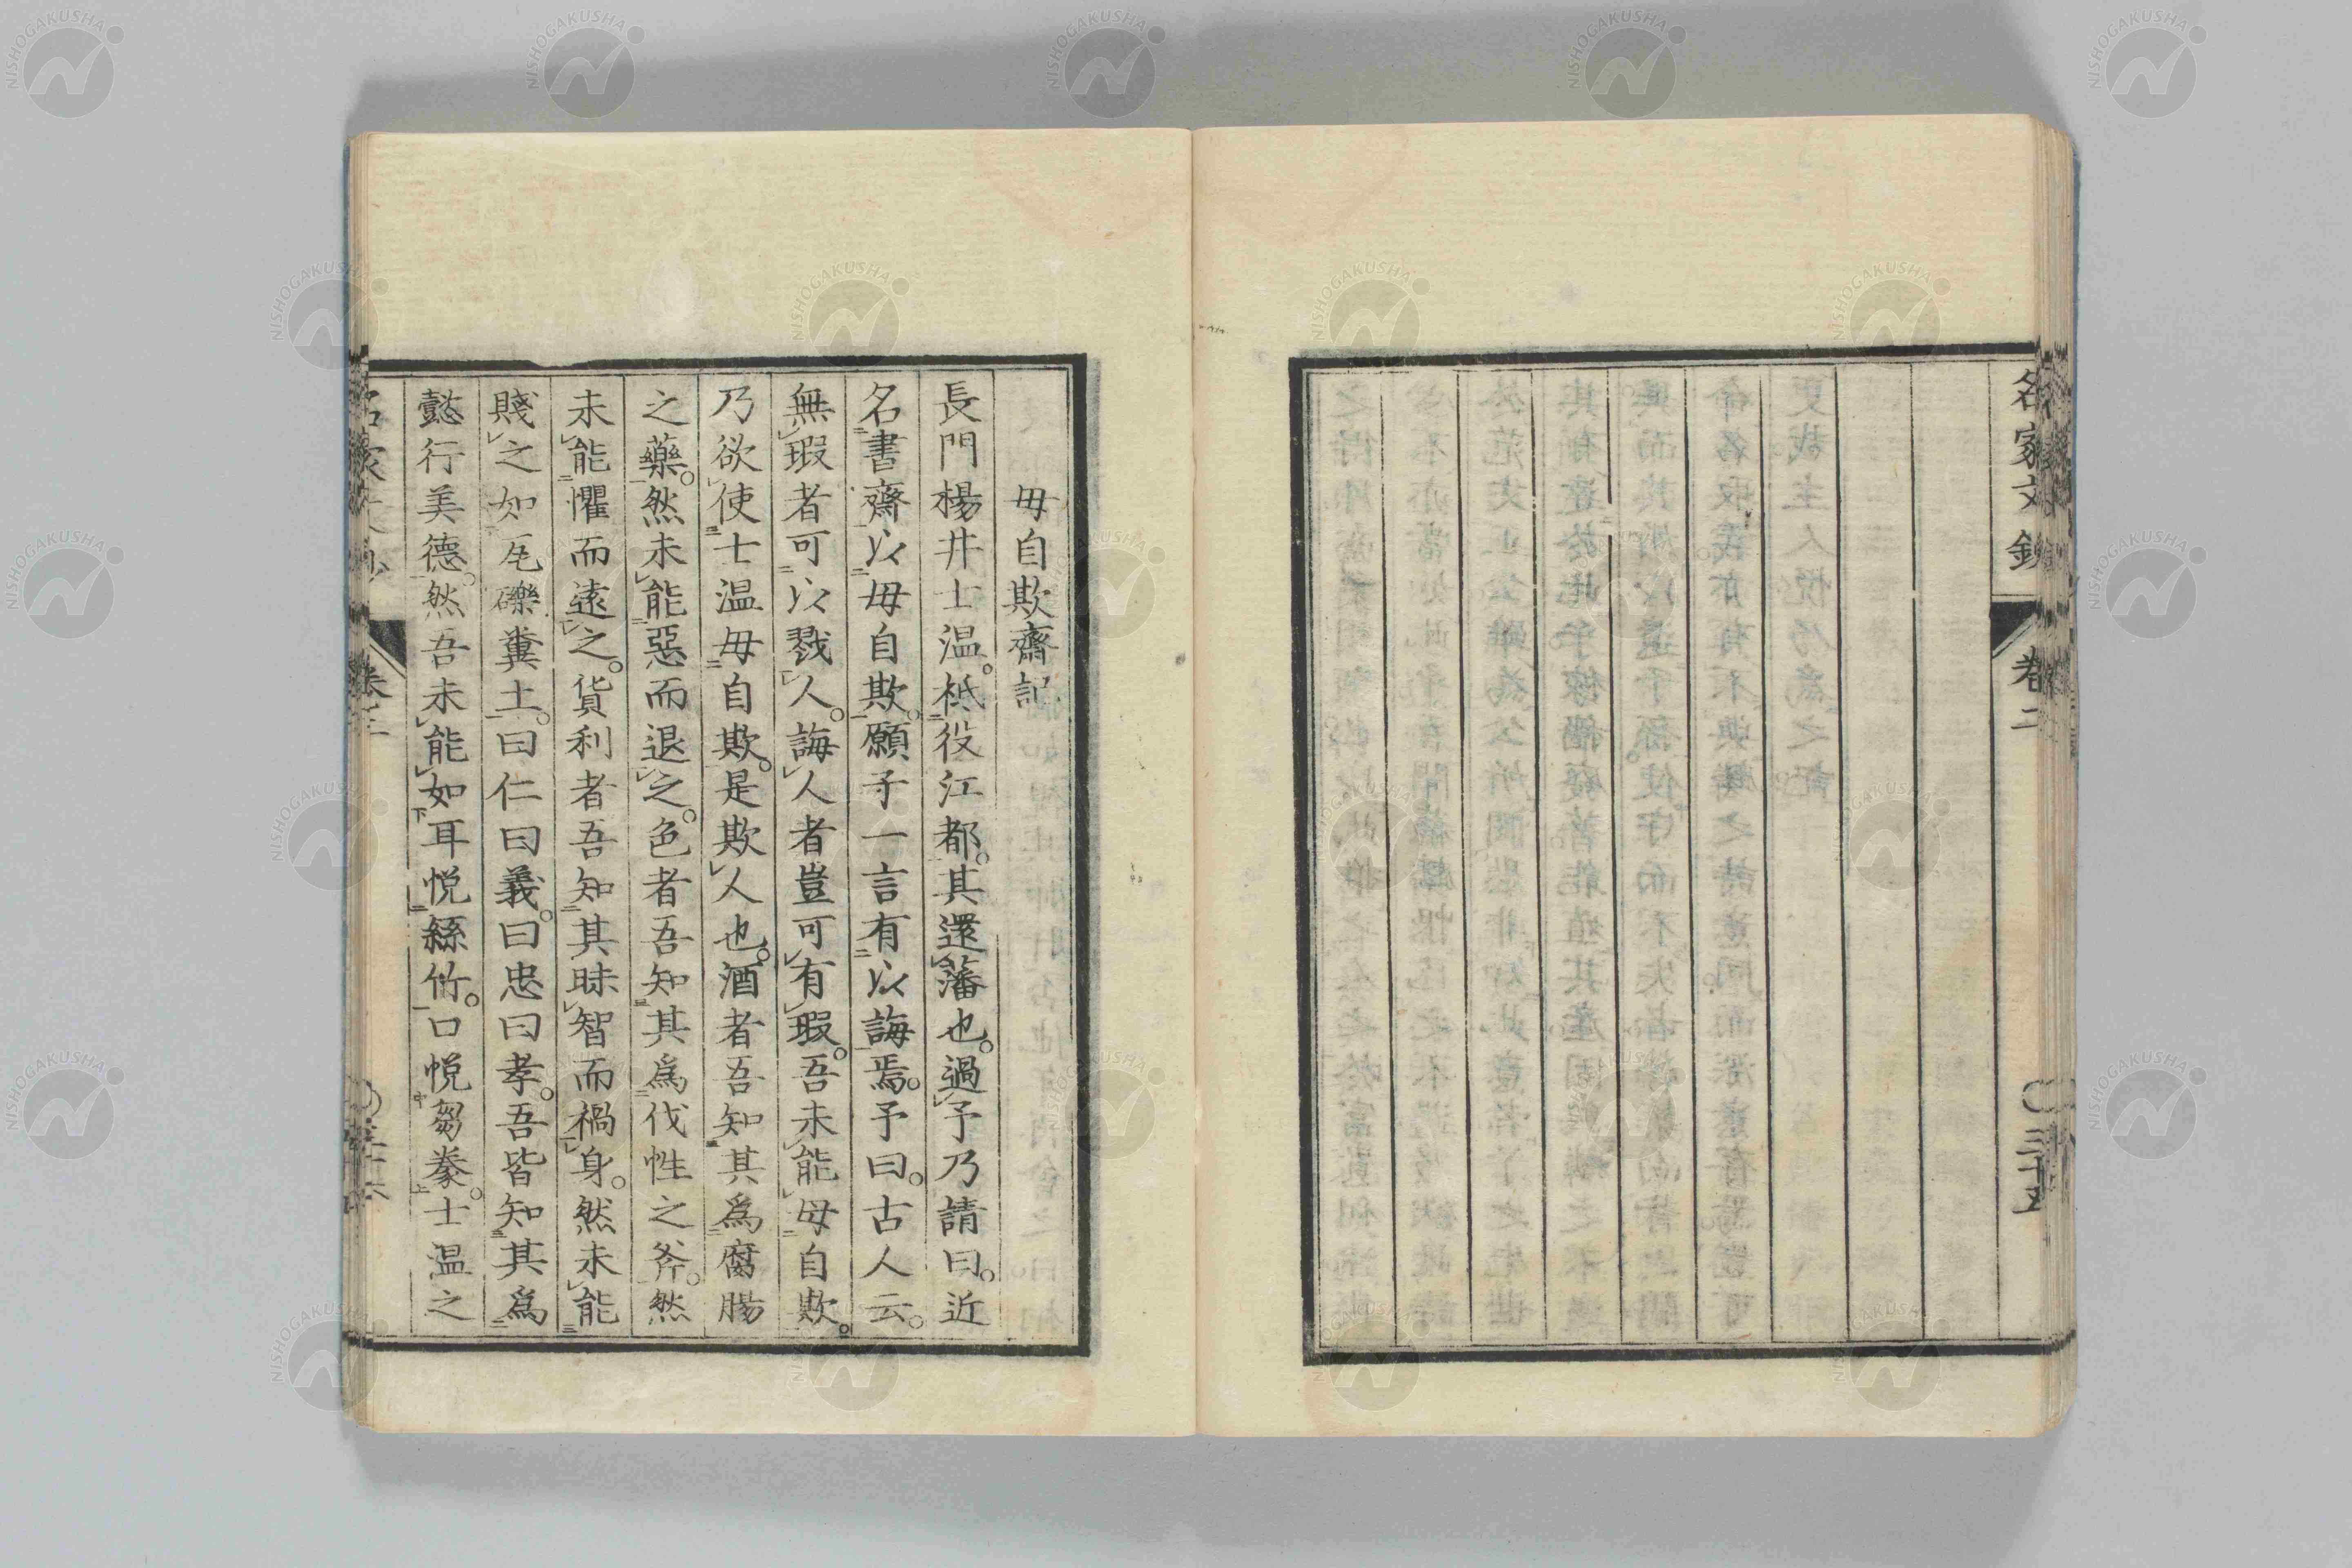 名家文鈔 卷二 三十五
毋自欺齋記
長門楊井士温。祇役江都。其還藩也。過予乃請曰。近
名書齋以毋自欺。願子一言有以誨焉。予曰。古人云。
無瑕者可以戮人。誨人者豈可有瑕。吾未能毋自欺。
乃欲使士温毋自欺。是欺人也。酒者吾知其爲腐腸
之藥。然未能惡而退之。色者吾知其爲伐性之斧。然
未能懼而遠之。貨利者吾知其昧智而禍身。然未能
賤之如瓦礫糞土。曰仁曰義。曰忠曰孝。吾皆知其爲
懿行美德。然吾未能如耳悦絲竹。口悦芻豢。士温之